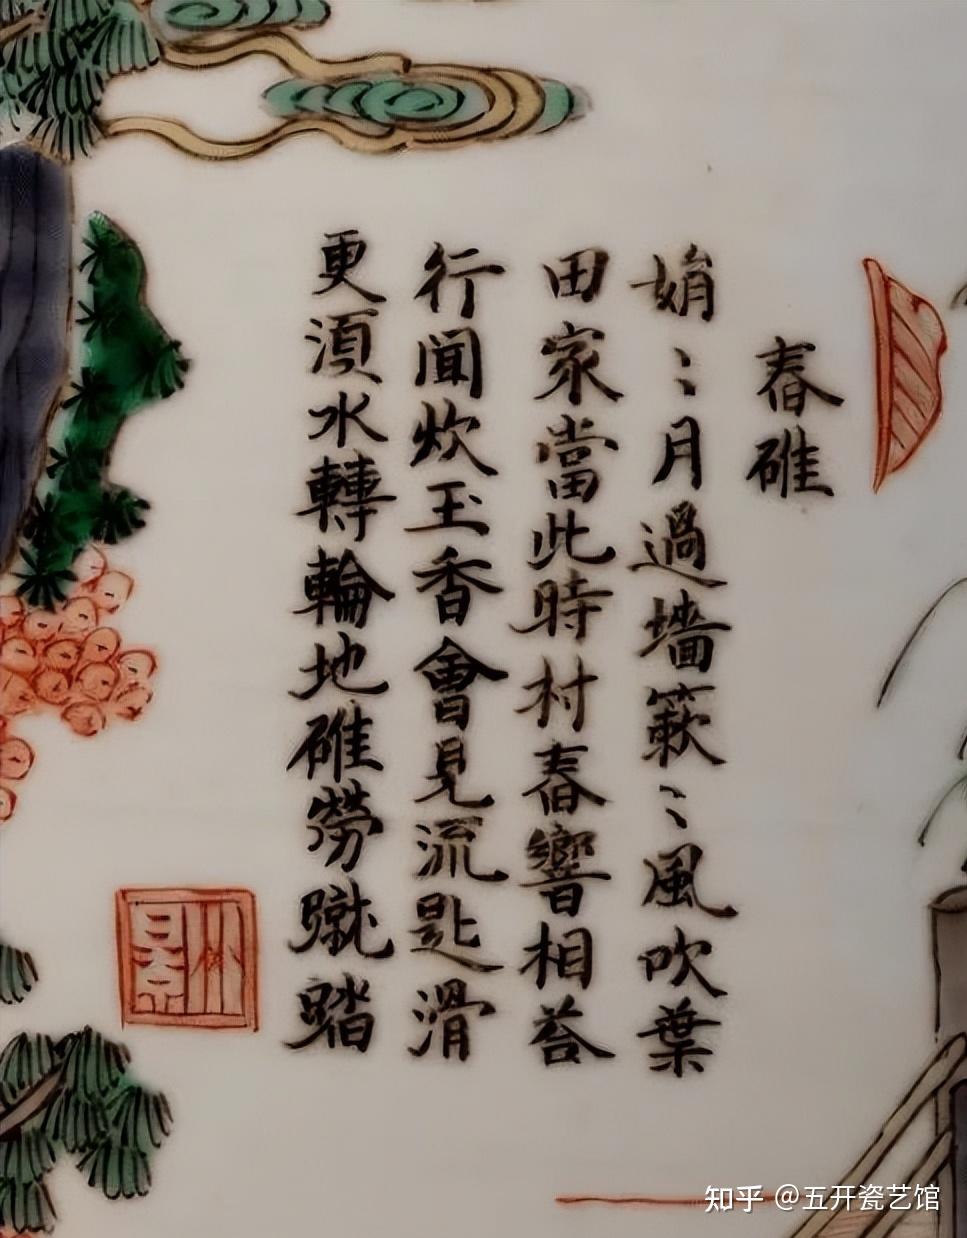 舂碓
娟〻月過墻簌〻風吹葉
田家當此時村舂響相荅
行聞炊玉香會見流匙滑
更湏水轉輪地碓勞蹴踏
知乎 @五开瓷艺馆